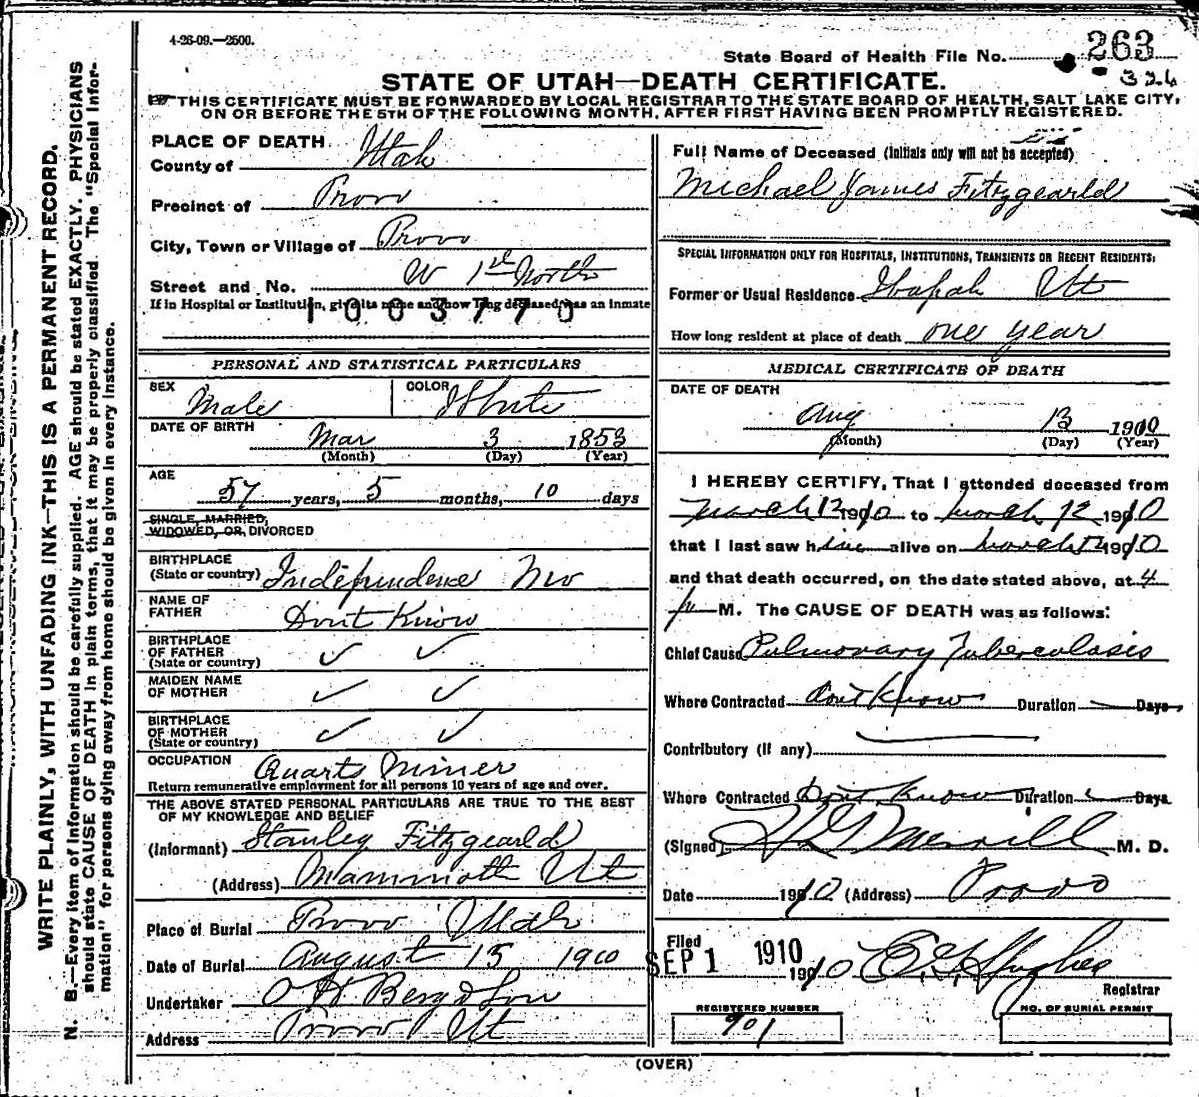 4-26-09.—2500.
State Board of Health File No. 263
326
STATE OF UTAH—DEATH CERTIFICATE.
THIS CERTIFICATE MUST BE FORWARDED BY LOCAL REGISTRAR TO THE STATE BOARD OF HEALTH, SALT LAKE CITY,
ON OR BEFORE THE 5TH OF THE FOLLOWING MONTH, AFTER FIRST HAVING BEEN PROMPTLY REGISTERED.
WRITE PLAINLY, WITH UNFADING INK—THIS IS A PERMANENT RECORD.
N. B.—Every item of information should be carefully supplied. AGE should be stated EXACTLY. PHYSICIANS
should state CAUSE OF DEATH in plain terms, that it may be properly classified. The "Special Infor-
mation" for persons dying away from home should be given in every instance.
PLACE OF DEATH
County of Utah
Precinct of Provo
City, Town or Village of Provo
Street and No. W 1st North
If in Hospital or Institution, give its name and how long deceased was an inmate
1003770
PERSONAL AND STATISTICAL PARTICULARS
SEX Male COLOR White
DATE OF BIRTH
Mar 3 1853
(Month) (Day) (Year)
AGE
57 years, 5 months, 10 days
SINGLE, MARRIED,
WIDOWED, OR DIVORCED
BIRTHPLACE
(State or country) Independence Mo
NAME OF
FATHER Dont Know
BIRTHPLACE
OF FATHER
(State or country)
MAIDEN NAME
OF MOTHER
BIRTHPLACE
OF MOTHER
(State or country)
OCCUPATION Quarts Miner
Return remunerative employment for all persons 10 years of age and over.
THE ABOVE STATED PERSONAL PARTICULARS ARE TRUE TO THE BEST
OF MY KNOWLEDGE AND BELIEF
(Informant) Stanley Fitzgearld
(Address) Mammoth Ut
Place of Burial Provo Utah
Date of Burial August 15 1910
Undertaker O H Berg & Son
Address Provo Ut
Full Name of Deceased (Initials only will not be accepted)
Michael James Fitzgearld
SPECIAL INFORMATION ONLY FOR HOSPITALS, INSTITUTIONS, TRANSIENTS OR RECENT RESIDENTS:
Former or Usual Residence Ibapah Ut
How long resident at place of death one year
MEDICAL CERTIFICATE OF DEATH
DATE OF DEATH
Aug 13 1910
(Month) (Day) (Year)
I HEREBY CERTIFY, That I attended deceased from
March 12 1910 to March 12 1910
that I last saw him alive on March 12 1910
and that death occurred, on the date stated above, at 4
p M. The CAUSE OF DEATH was as follows:
Chief Cause Pulmonary Tuberculosis
Where Contracted dont Know Duration Days
Contributory (if any)
Where Contracted Dont Know Duration Days
(Signed) Merrill M. D.
Date 1910 (Address) Provo
Filed
SEP 1 1910
1910 Hughes
Registrar
REGISTERED NUMBER
901
NO. OF BURIAL PERMIT
(OVER)